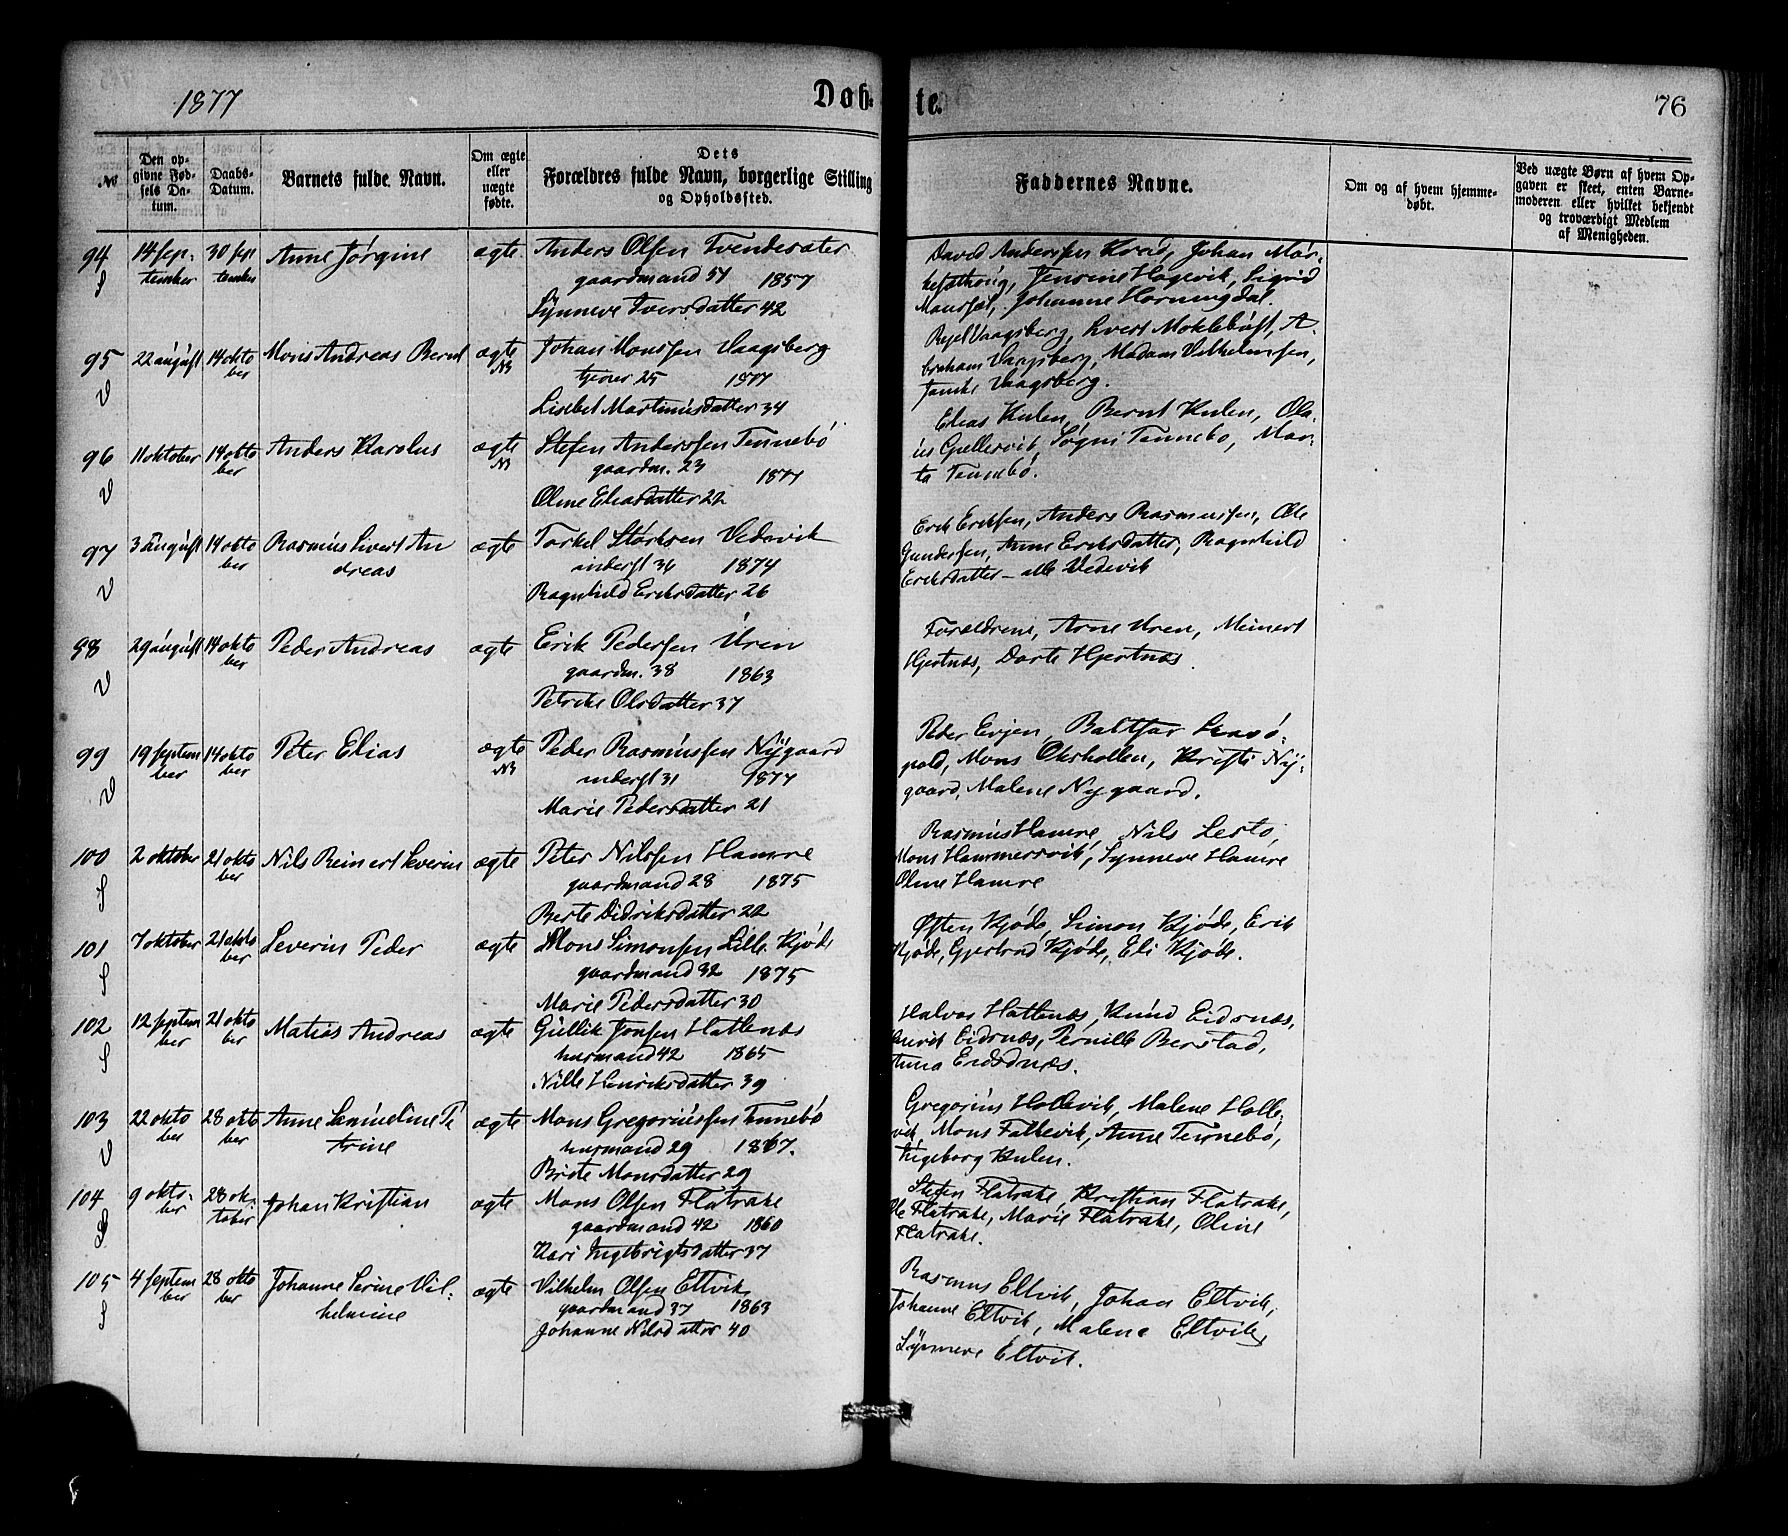 1877
Døb-
te.
76
No
Den op-
givne Fød-
sels Da-
tum.
Daabs-
Datum.
Barnets fulde Navn.
Om ægte
eller
uægte
fødte.
Dets
Forældres fulde Navn, borgerlige Stilling
og Opholdssted.
Faddernes Navne.
Om og af hvem hjemme-
døbt.
Ved uægte Børn af hvem Op-
gaven er skeet, enten Barne-
moderen eller hvilket bekjendt
og troværdigt Medlem
af Menigheden.
94 14 sep- 30 sep Anne Jørgine ægte Anders Olsen Tvendesæter
S tember tember gaardmand 57 1857
Synneve Iversdatter 42
David Anderssen Kvad, Johan Mør-
Jensine Hagevik, Sigrid
Maurset, Johanne Hornindal.
95 22 august 14 okto Mons Andreas Bernt ægte Johan Monssen Vaagsberg
V ber NB tjener 25 1877
Lisebet Martinusdatter 34
Vaagsberg, Sivert Moklebust, A-
braham Vaagsberg, Madam Vilhelmsen,
Vaagsberg.
96 11 oktober 14 okto Anders Karolus ægte Stefen Anderssen Tennebø
V ber N gaardm. 23 1877
Oline Eliasdatter 22
Elias Kulen, Bernt Kulen, Ola-
us Gullesvik, Søgni Tennebø, Mar-
ta Tennebø.
97 3 august 14 okto Rasmus Sivert An ægte Torkel Størksen Vedvik
V ber dreas inderst 36 1874
Ragnhild Eriksdatter 26
Erik Eriksen, Anders Rasmussen, Ole
Gundersen, Anne Eriksdatter, Ragnhild
Eriksdatter – alle Vedevik
98 29 august 14 okto Peder Andreas ægte Erik Pedersen Uren
V ber gaardm. 38 1863
Petrike Olsdatter 37
Forældrene, Arne Uren, Meinert
Hjertnæs, Dorte Hjertnæs.
99 19 septem 14 okto Peter Elias ægte Peder Rasmussen Nygaard
V ber ber NB inderst 31 1877
Marie Pedersdatter 21
Peder Evjen, Baltsar Sandø-
pold, Mons Okshollen, Kristi Ny-
gaard, Malene Nygaard.
100 2 oktober 21 okto Nils Reinert Severin ægte Peter Nilssen Hamre
S ber gaardmand 28 1875
Berte Didriksdatter 22
Rasmus Hamre, Nils Lestø,
Mons Hammersvik, Synneve Hamre
Oline Hamre
101 7 oktober 21 okto Severin Peder ægte Mons Simonsen Lille Kjøde
S ber gaardmand 32 1875
Marie Pedersdatter 30
Østen Kjøde, Simon Kjøde, Erik
Kjøde, Gjertrud Kjøde, Eli Kjøde.
102 12 septem 21 okto Matias Andreas ægte Gullik Jonsen Hatlenæs
S ber ber husmand 42 1865
Nille Henriksdatter 39
Halvor Hatlenæs, Knud Eidsnæs,
Eidsnæs, Pernille Berstad,
Anna Eidsnæs.
103 22 okto 28 okto Anne Samueline Pe ægte Mons Gregoriussen Tennebø
V ber ber trine husmand 29 1867.
Brite Monsdatter 29
Gregorius Hollevik, Malene Holle-
vik, Mons Falkevik, Anne Tennebø,
Ingeborg Kulen.
104 9 okto- 28 ok- Johan Kristian ægte Mons Olsen Flatrake
S ber tober gaardmand 42 1860
Kari Ingebrigtsdatter 37
Stefen Flatrake, Kristian Flatrake,
Ole Flatrake, Marie Flatrake, Oline
Flatrake.
105 4 septem 28 okto Johanne Serine Vil- ægte Vilhelm Olsen Eltvik
S ber ber helmine gaardmand 37 1863
Johanne Nilsdatter 40
Rasmus Eltvik, Johan Eltvik,
Johanne Eltvik, Malena Eltvik,
Synneve Eltvik.